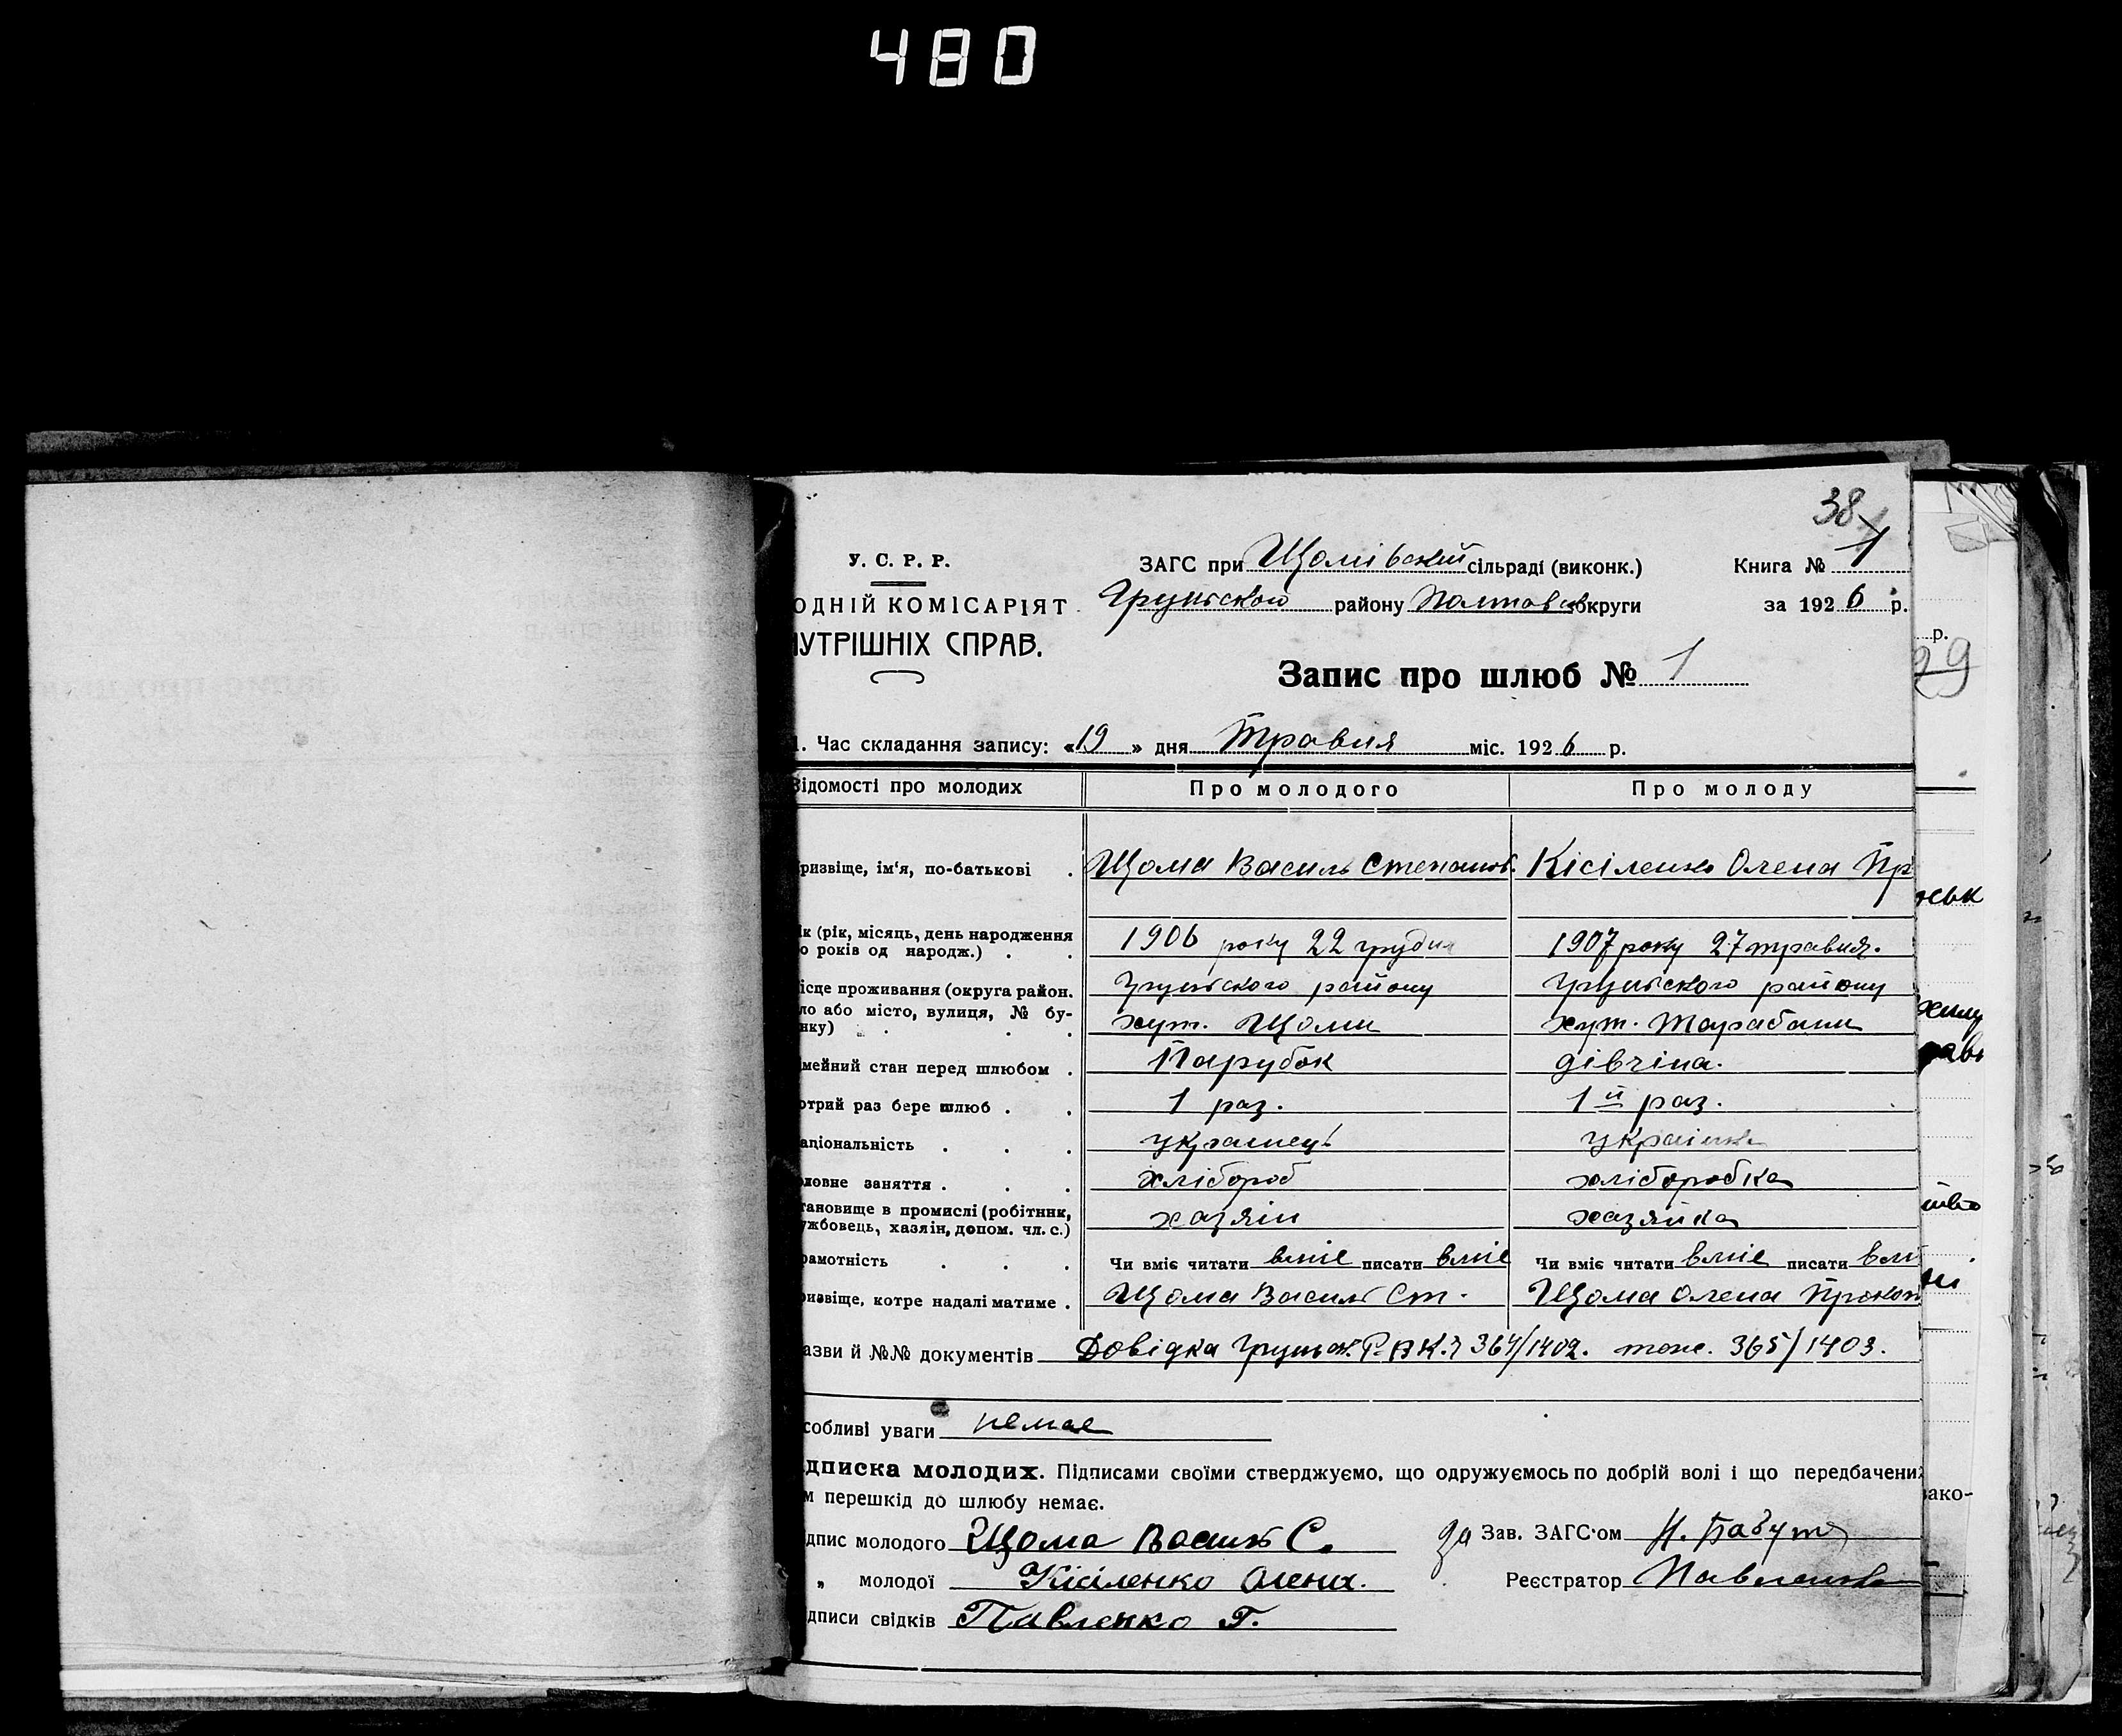 480
38
У. С. Р. Р.
ОДНІЙ КОМІСАРІЯТ
НУТРІШНІХ СПРАВ.
ЗАГС при Щомівській сільраді (виконк.)
Грунського району Полтавс округи
Книга № 1
за 1926 р.
Запис про шлюб № 1
1. Час складання запису: «19» дня Травня міс. 1926 р.
Відомості про молодих Про молодого Про молоду
ризвіще, ім'я, по-батькові . Щома Василь Степанов. Кісіленко Олена Пр
ік (рік, місяць, день народження
о років од народж.) . . 1906 року 22 грудня 1907 року 27 травня.
ісце проживання (округа район. Грунського району Грунського району
ло або місто, вулиця, № бу-
нку) . . . хут. Щоми хут. Тарабани
мейний стан перед шлюбом . Парубок дівчіна.
отрий раз бере шлюб . . 1 раз. 1й раз.
аціональність . . . українець українка
ловне заняття . . . хлібороб хлібробка
тановище в промислі (робітник,
ужбовець, хазяін, допом. чл. с.) хазяін хазяйка
рамотність . . . Чи вміє читати вміє писати вміє Чи вміє читати вміє писати вмі
ризвіще, котре надалі матиме . Щома Василь Ст. Щома Олена Прокоп
азви й №№ документів Довідка Грунськ. Р.В.К. 364/1402. тож. 365/1403.
собливі уваги немає
дписка молодих. Підписами своїми стверджуємо, що одружуємось по добрій волі і що передбачених
м перешкід до шлюбу немає.
дпис молодого Щома Василь С. За Зав. ЗАГС'ом
„ молодої Кісіленко Олена. Реєстратор Павленко
дписи свідків Павленко Г.
р.
99
ако-